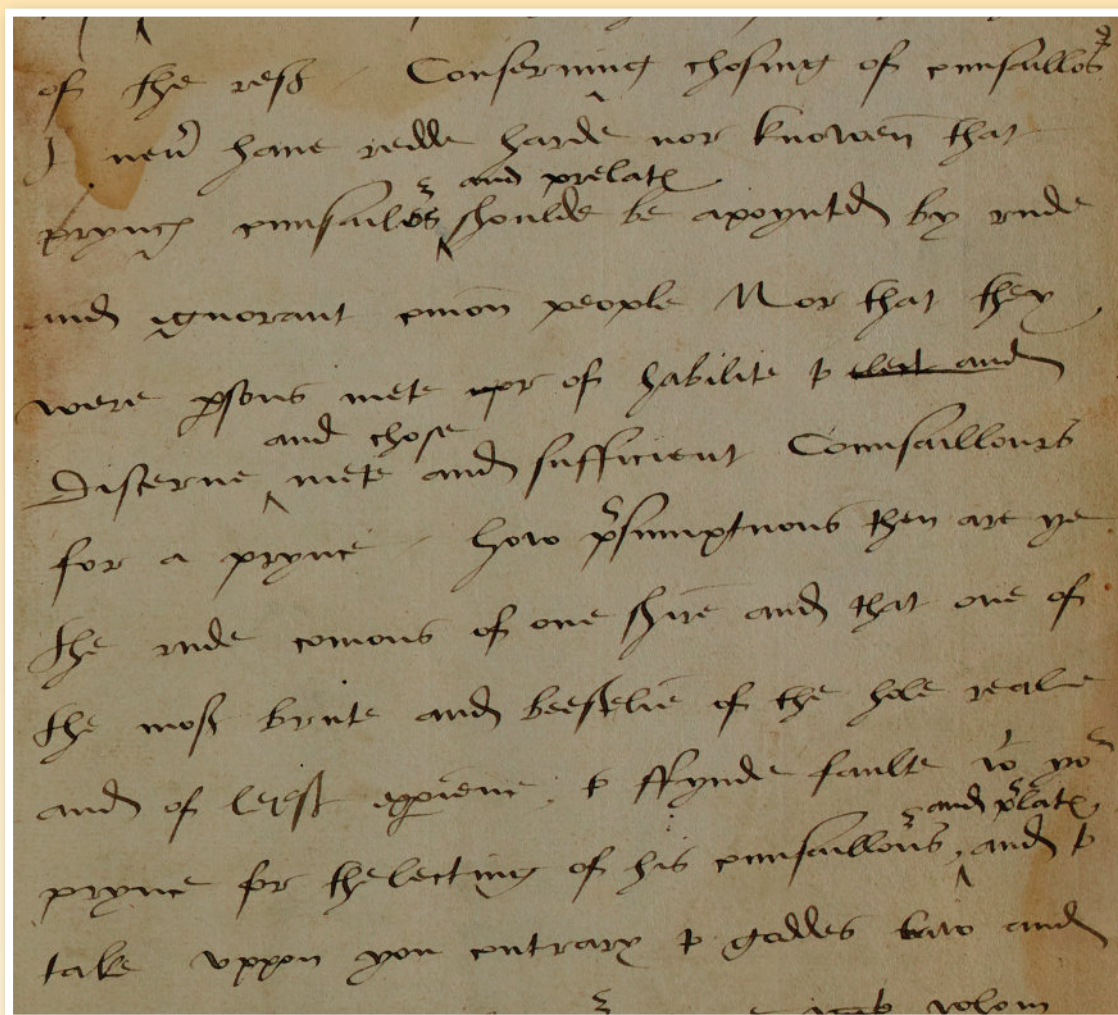 of the rest Conserning chosing of counsallors
I neu͛ haue redde harde nor knowen that
and prelat℮
prync℮ counsailors shoulde be apoynted by rude
and ignorant comon people Nor that they
were ꝑsons mete or of habilite to elect and
and chose
Discerne mete and sufficient Counsaillours
for a prynce how p͛sumptuous then are ye
the rude comons of one shire and that one of
the most brute and beestelie of the hole realme
and of leest exꝑience to ffynde faulte wt yor
and p͛lat℮
prynce for thelecting of his counsaillours and to
take vppon you contrary to goddes law and